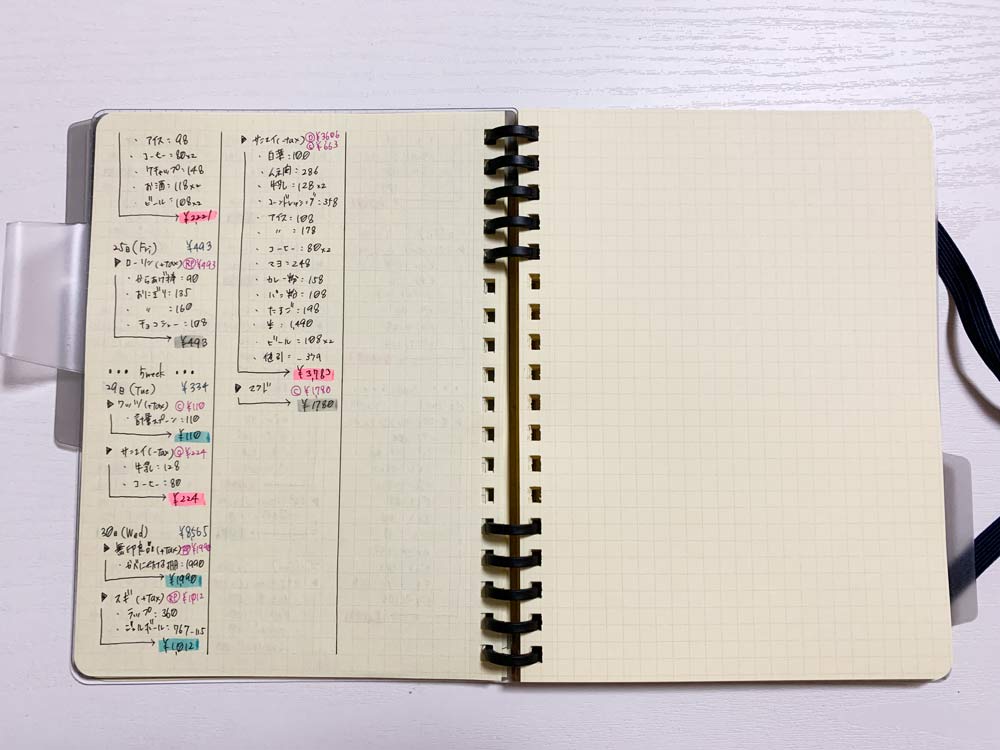 ・アイス:98
・コーヒー:80×2
・ケチャップ:148
・お酒:118×2
・ビール:108×2
¥2221
25日(Fri) ¥493
▶ローソン(+Tax) RP ¥493
・からあげ棒:90
・おにぎり:135
・〃:160
・チョコシュー:108
¥493
••• 5week •••
29日(Tue) ¥334
▶ワッツ(+Tax) C ¥110
・計量スプーン:110
¥110
▶サンエイ(-Tax) Q ¥224
・牛乳:128
・コーヒー:80
¥224
30日(Wed) ¥8,565
▶無印良品(+Tax) ¥1990
・壁に付けられる棚:1990
¥1,990
▶スギ(+Tax) RP ¥1,012
・ラップ:360
・ジェルボール:767-115
¥1,012
▶サンエイ(-tax) ¥3606
¥663
・白菜:100
・人豆肉:286
・牛乳:128×2
・コーンドレッシング:358
・アイス:108
・〃:178
・コーヒー:80×2
・マヨ:248
・カレー粉:158
・パン粉:108
・たまご:198
・生:1,490
・ビール:108×2
・値引:-379
¥3,783
▶マクド C ¥1,780
¥1780